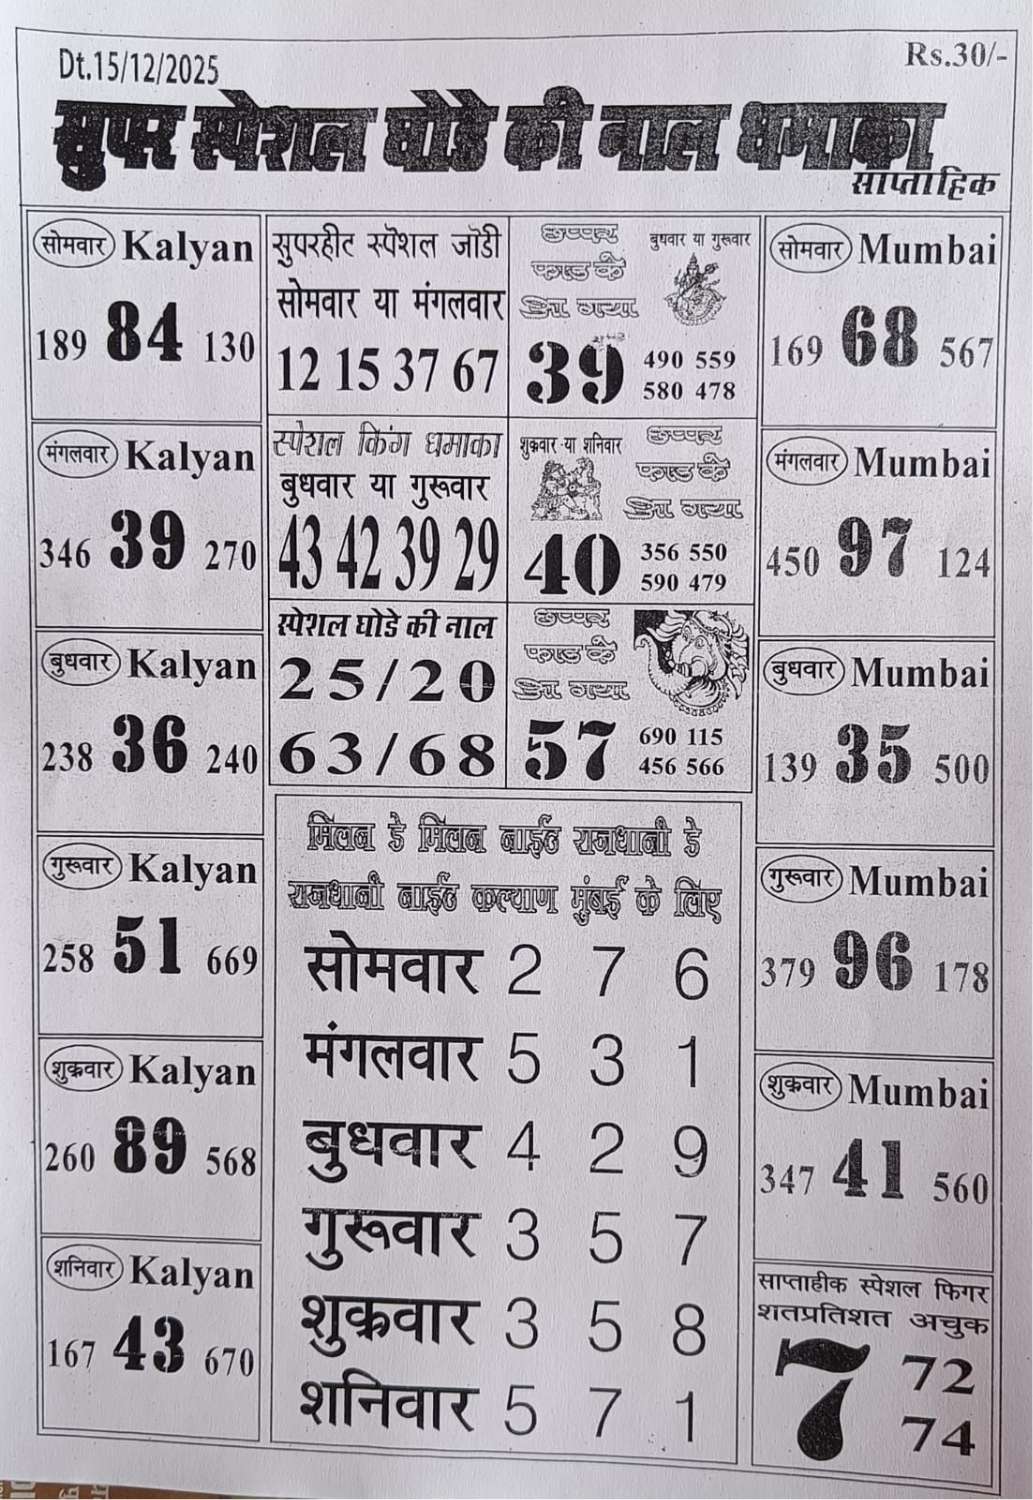 Dt.15/12/2025
Rs.30/-
सुपर स्पेशल घोडे की नाल धमाका
साप्ताहिक
सोमवार Kalyan
189 84 130
मंगलवार Kalyan
346 39 270
बुधवार Kalyan
238 36 240
गुरूवार Kalyan
258 51 669
शुक्रवार Kalyan
260 89 568
शनिवार Kalyan
167 43 670
सुपरहीट स्पेशल जोडी
सोमवार या मंगलवार
12 15 37 67
स्पेशल किंग धमाका
बुधवार या गुरूवार
43 42 39 29
स्पेशल घोडे की नाल
25/20
63/68
छप्पर
फाड के
आ गया
बुधवार या गुरूवार
39
490 559
580 478
शुक्रवार या शनिवार
छप्पर
फाड के
आ गया
40
356 550
590 479
छप्पर
फाड के
आ गया
57
690 115
456 566
मिलन डे मिलन नाईट राजधानी डे
राजधानी नाईट कल्याण मुंबई के लिए
सोमवार 2 7 6
मंगलवार 5 3 1
बुधवार 4 2 9
गुरूवार 3 5 7
शुक्रवार 3 5 8
शनिवार 5 7 1
सोमवार Mumbai
169 68 567
मंगलवार Mumbai
450 97 124
बुधवार Mumbai
139 35 500
गुरूवार Mumbai
379 96 178
शुक्रवार Mumbai
347 41 560
साप्ताहीक स्पेशल फिगर
शतप्रतिशत अचुक
7
72
74